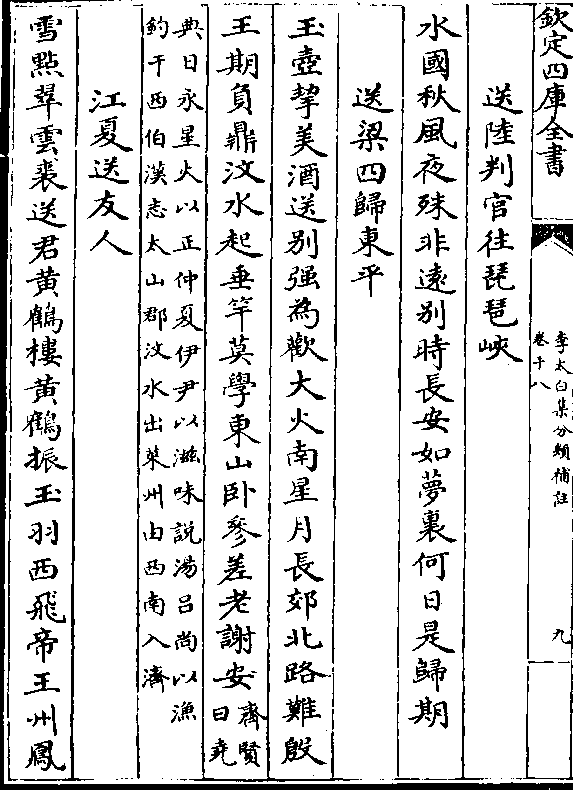 欽定四庫全書
李太白集分類補註
卷十八
九
送陸判官往琵琶峽
水國秋風夜殊非遠别時長安如夢裏何日是歸期
送梁四歸東平
玉壺挈美酒送别强為歡大火南星月長郊北路難殷
王期負鼎汶水起垂竿莫學東山卧參差老謝安
齊賢
曰堯
典日永星火以正仲夏伊尹以滋味説湯吕尚以漁
釣干西伯漢志太山郡汶水出萊州由西南入濟
江夏送友人
雪點翠雲裘送君黄鶴樓黄鶴振玉羽西飛帝王州鳳